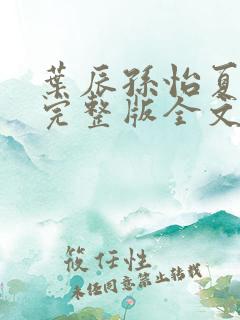 葉辰孫怡夏
完整版全文
筱任性
未经同意禁止转载